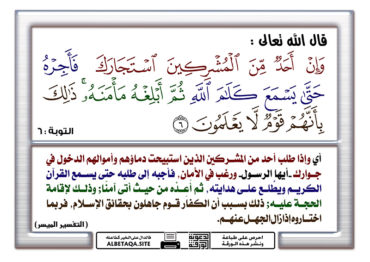 قال الله تعالى :
وَإِنْ أَحَدٌ مِّنَ الْمُشْرِكِينَ اسْتَجَارَكَ فَأَجِرْهُ
حَتَّىٰ يَسْمَعَ كَلَامَ اللَّهِ ثُمَّ أَبْلِغْهُ مَأْمَنَهُ ۚ ذَٰلِكَ
بِأَنَّهُمْ قَوْمٌ لَّا يَعْلَمُونَ ٦
التوبة : ٦
أي وإذا طلب أحد من المشركين الذين استبيحت دماؤهم وأموالهم الدخول في
جوارك -أيها الرسول- ورغب في الأمان، فأجبه إلى طلبه حتى يسمع القرآن
الكريم ويطلع على هدايته، ثم أعده من حيث أتى آمنا؛ وذلك لإقامة
الحجة عليه؛ ذلك بسبب أن الكفار قوم جاهلون بحقائق الإسلام، فربما
اختاروه إذا زال الجهل عنهم.
(التفسير الميسر)
احرص على طباعة
ونشر هذه الورقة
الدال على الخير كفاعله
ALBETAQA.SITE